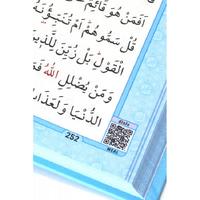 اَفَمَنْ هُوَ قَٓائِمٌ
قُلْ سَمُّوهُمْ اَمْ تُنَبِّؤُ۫نَهُ
الْقَوْلِ بَلْ زُيِّنَ لِلَّذ۪ينَ
وَمَنْ يُضْلِلِ اللّٰهُ فَمَا
الدُّنْيَا وَلَعَذَابُ
252
MEAL